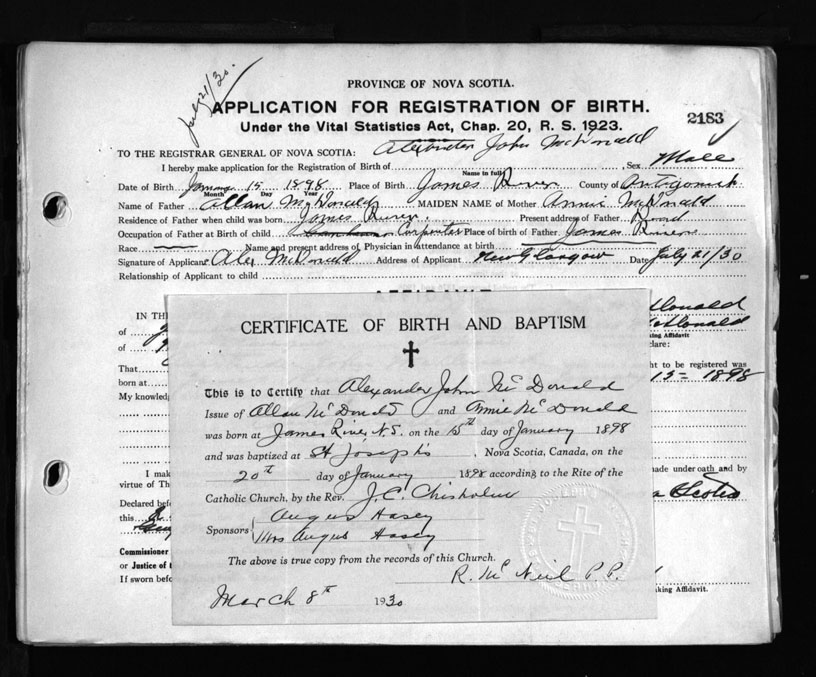 July 21/30.
PROVINCE OF NOVA SCOTIA.
APPLICATION FOR REGISTRATION OF BIRTH.
2183
Under the Vital Statistics Act, Chap. 20, R. S. 1923.
TO THE REGISTRAR GENERAL OF NOVA SCOTIA:
I hereby make application for the Registration of Birth of Alexander John McDonald Sex Male
Name in full
Date of Birth January 15 1898 Place of Birth James River County of Antigonish
Month Day Year
Name of Father Allan McDonald MAIDEN NAME of Mother Annie McDonald
Residence of Father when child was born James River. Present address of Father Dead
Occupation of Father at Birth of child Carpenter Place of birth of Father James River
Race Name and present address of Physician in attendance at birth
Signature of Applicant Alex McDonald Address of Applicant New Glasgow Date July 21/30
Relationship of Applicant to child
AFFIDAVIT
IN THE
of
of
That
born at
My knowled
I mak
virtue of Th
Declared befo
this
Commissioner
or Justice of t
If sworn befo
Donald
McDonald
king Affidavit
clare:
ht to be registered was
15 1898
made under oath and by
Scotia
king Affidavit.
CERTIFICATE OF BIRTH AND BAPTISM
This is to Certify that Alexander John McDonald
Issue of Allan McDonald and Annie McDonald
was born at James River N.S. on the 15th day of January 1898
and was baptized at St Joseph's, Nova Scotia, Canada, on the
20th day of January 1898 according to the Rite of the
Catholic Church, by the Rev. J. C. Chisholm
Sponsors { Angus Hasey
Mrs Angus Hasey
The above is true copy from the records of this Church.
R. McNeil P.P.
March 8th 1930